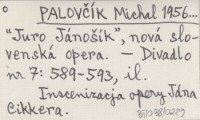 PALOVČÍK Michal 1956...
"Juro Jánošík", nová slo-
venská opera. – Divadlo
nr 7: 589-593, il.
Inscenizacja opery Jána
Cikkera.